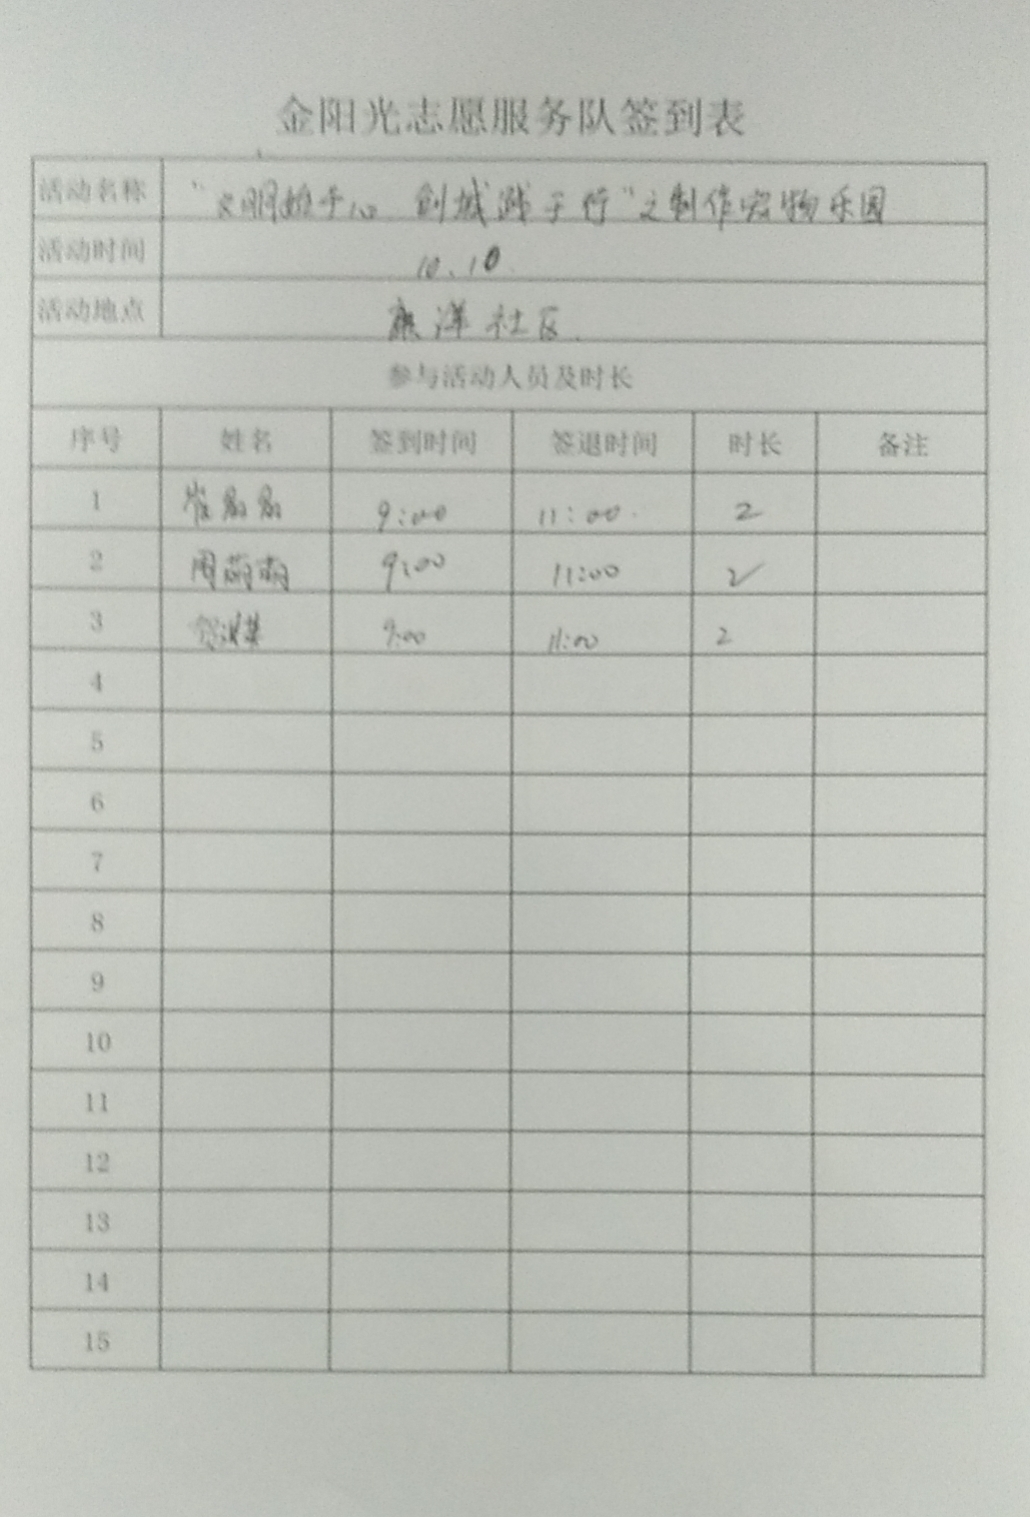 金阳光志愿服务队签到表
活动名称 "文明始于心 创城践于行"之制作宠物乐园
活动时间 10.10.
活动地点 社区.
参与活动人员及时长
序号 姓名 签到时间 签退时间 时长 备注
1 崔 9:00 11:00. 2
2 周萌萌 9:00 11:00 2
3 9:00 11:00 2
4
5
6
7
8
9
10
11
12
13
14
15